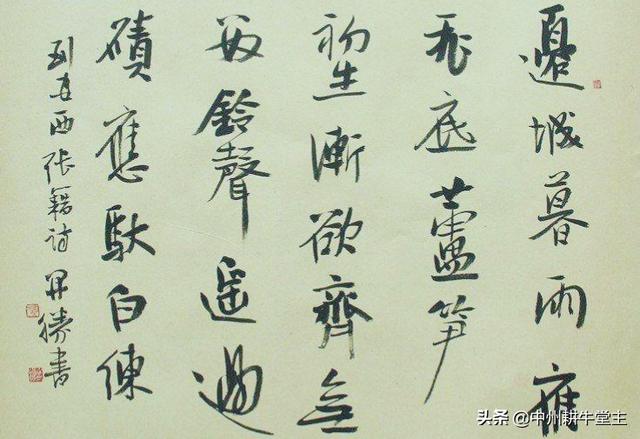 邊城暮雨雁
飛底蘆笋
初生漸欲齊無
數鈴聲遥過
磧應馱白練
到安西張籍詩勝書
头条 @中州耕牛堂主